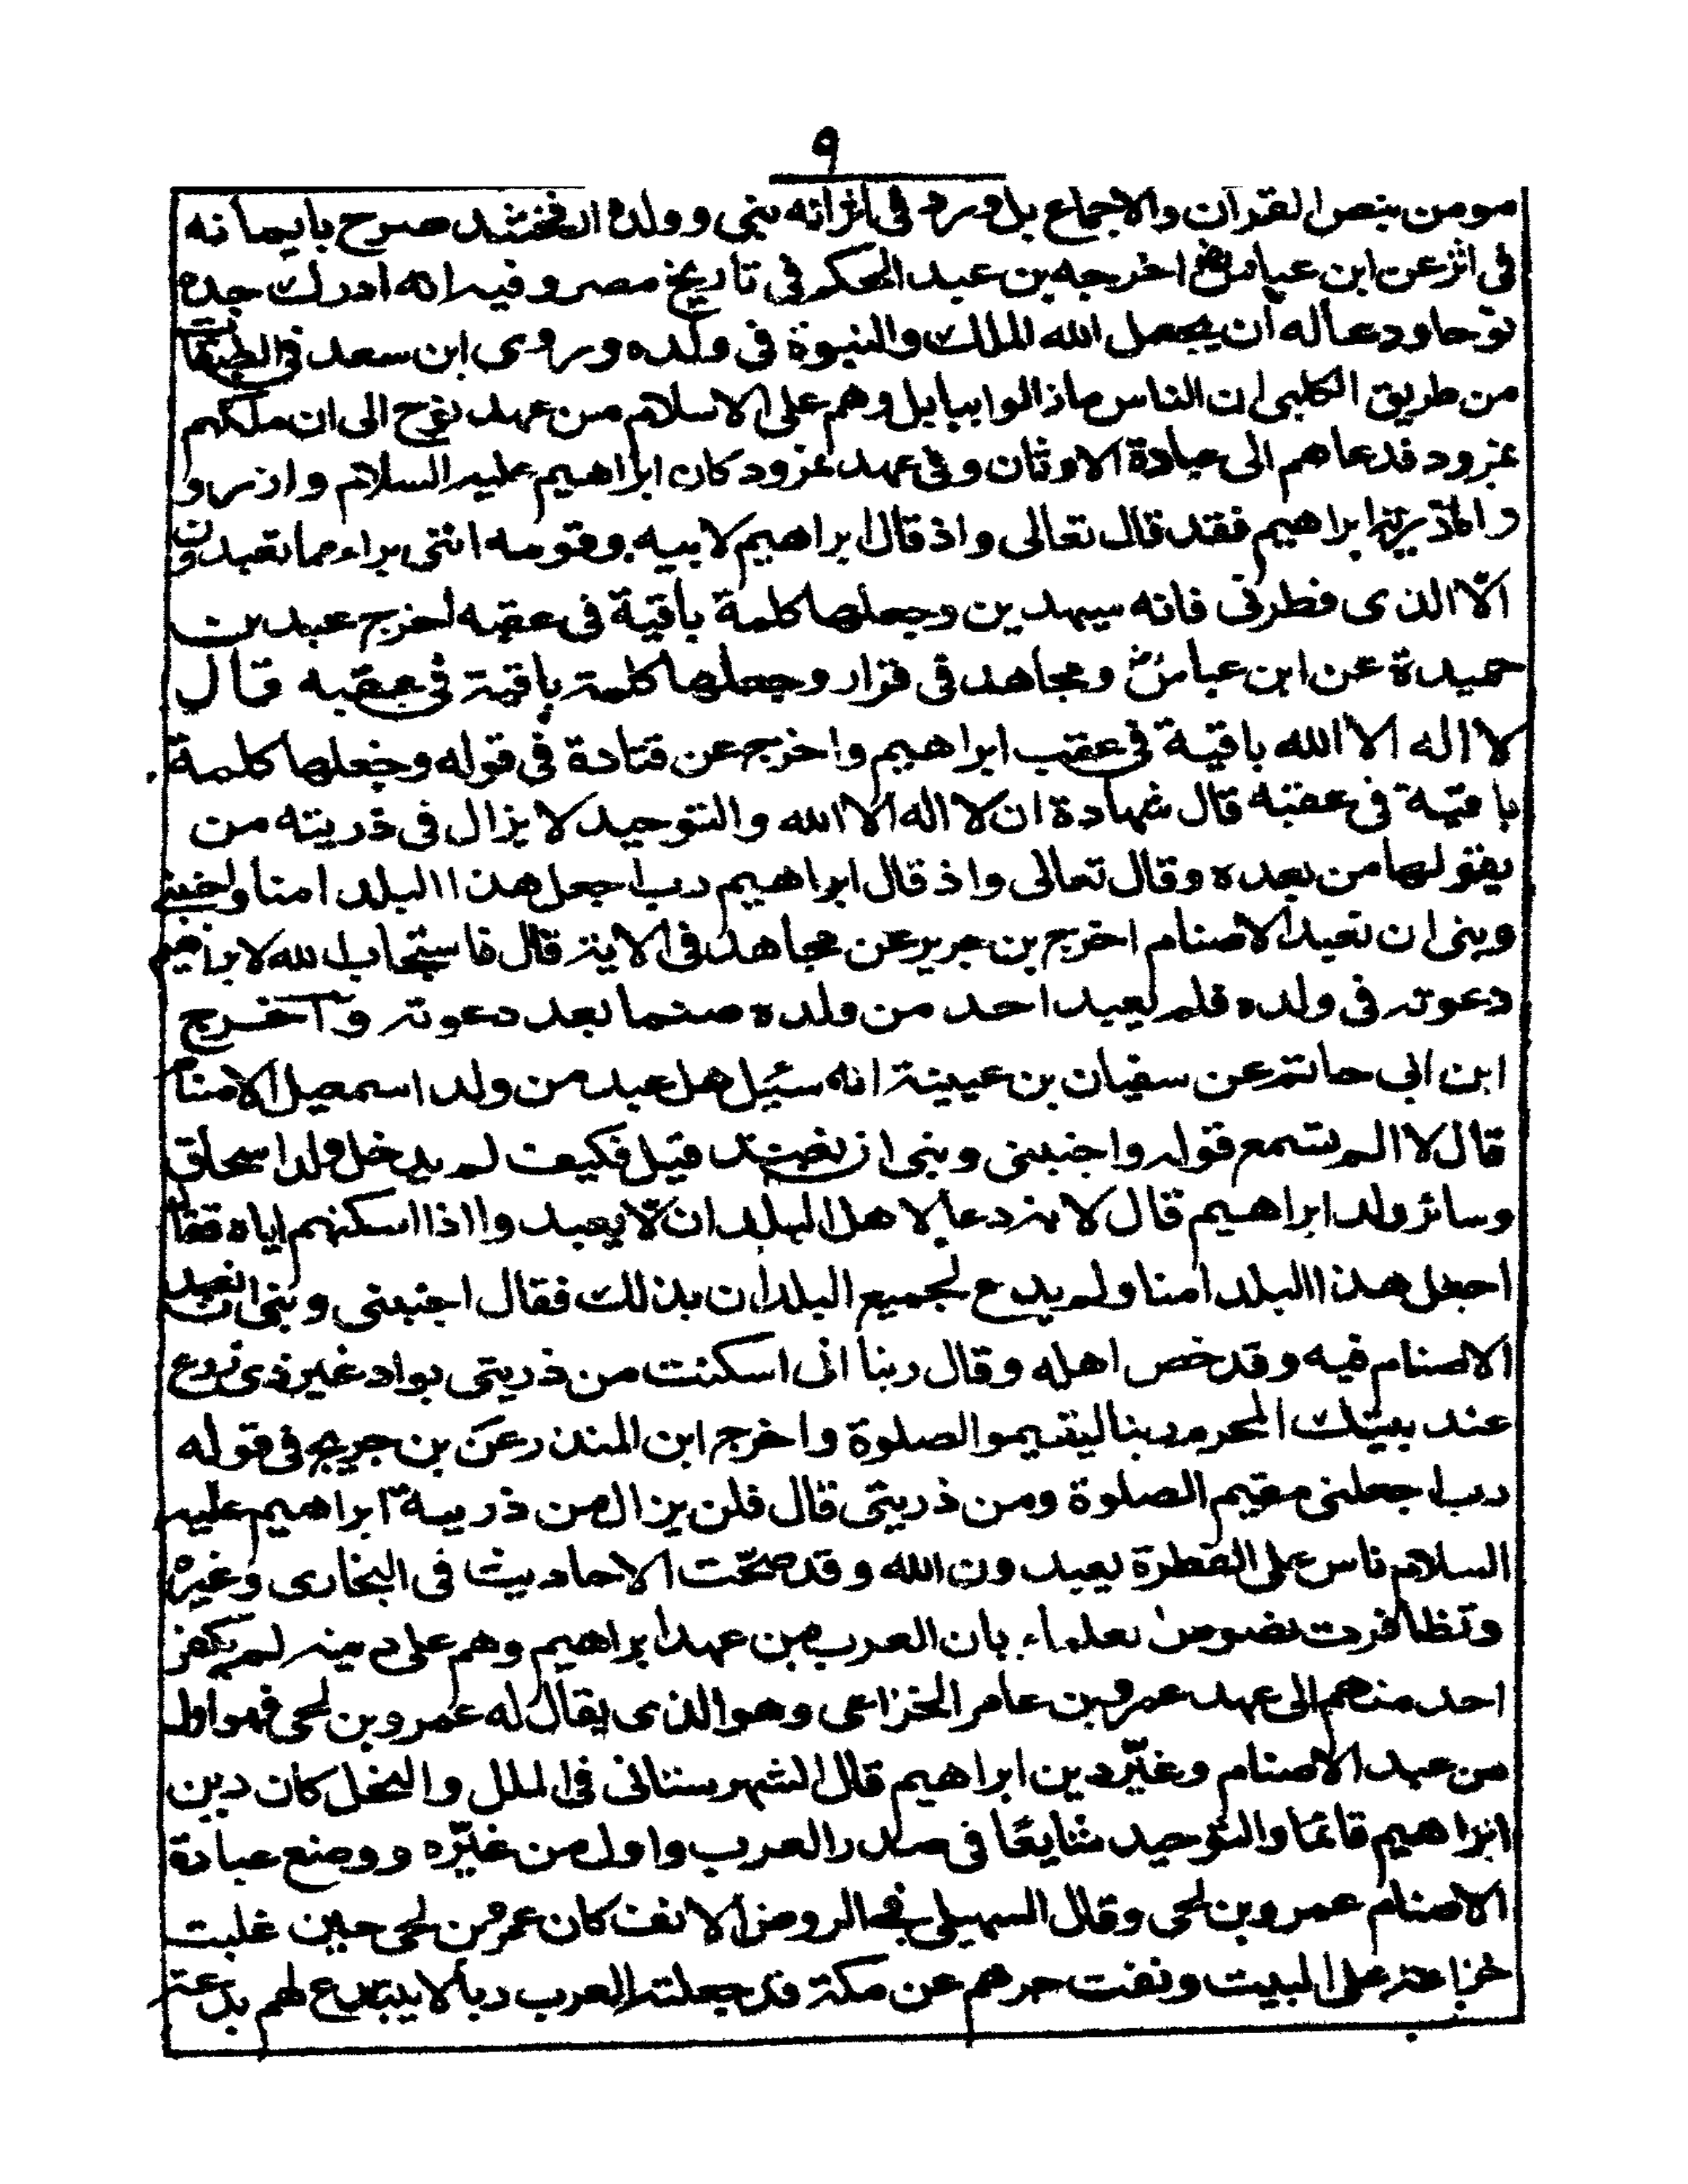 ٩
مومن بنص القرآن والاجماع بل ورد فی اثر انه نبی وولده ارفخشد صرح بایمانه
فی اثر عن ابن عباس اخرجه بن عبد الحکم فی تاریخ مصر وفیه انه ادرك جده
نوحا ودعا له ان یجعل الله الملك والنبوة فی ولده وروی ابن سعد فی الطبقات
من طریق الکلبی ان الناس مازالوا ببابل وهم علی الاسلام من عهد نوح الی ان ملکهم
نمرود فدعاهم الی عبادة الاوثان وفی عهد نمرود کان ابراهیم علیه السلام وازر و
و ابراهیم فقد قال تعالی واذ قال ابراهیم لابیه وقومه اننی براء مما تعبدون
الّا الذی فطرنی فانه سیهدین وجعلها کلمة باقیة فی عقبه اخرج عبد بن
حمیدة عن ابن عباس ومجاهد فی وجعلها کلمة باقیة فی عقبه قال
لا اله الا الله باقیة فی عقب ابراهیم واخرج عن قتادة فی قوله وجعلها کلمة
باقیة فی عقبه قال شهادة ان لا اله الا الله والتوحید لا یزال فی ذریته من
یقولها من بعده وقال تعالی واذ قال ابراهیم رب اجعل هذا البلد امنا واجنبنی
وبنی ان نعبد الاصنام اخرج بن جریر عن مجاهد فی الایة قال فاستجاب الله لابراهیم
دعوته فی ولده فلم یعبد احد من ولده صنما بعد دعوته واخرج
ابن ابی حاتم عن سفیان بن عیینة انه سئیل هل عبد من ولد اسمعیل الاصنام
قال لا الم تسمع قوله واجنبنی وبنی ان نعبد قیل فکیف لم یدخل ولد اسحاق
وسائر ولد ابراهیم قال لانه دعا لاهل البلد ان لا یعبدوا اذا اسکنهم ایاه فقال
اجعل هذا البلد امنا ولم یدع لجمیع البلدان بذلك فقال اجنبنی وبنی ان نعبد
الاصنام فیه وقد خص اهله وقال ربنا انی اسکنت من ذریتی بواد غیر ذی زرع
عند بیتك المحرم ربنا لیقیمو الصلوة واخرج ابن المنذر عن بن جریج فی قوله
رب اجعلنی مقیم الصلوة ومن ذریتی قال فلن یزال من ذریة ابراهیم علیه
السلام ناس علی الفطرة یعبدون الله وقد صحّت الاحادیث فی البخاری وغیره
وتظافرت نصوص العلماء بان العرب من عهد ابراهیم وهم علی دینه لم یکفر
احد منهم الی عهد عمرو بن عامر الخزاعی وهو الذی یقال له عمرو بن لحی فهو اول
من عبد الاصنام وغیّر دین ابراهیم قال الشهرستانی فی الملل والنحل کان دین
ابراهیم قائمًا والتوحید شایعًا فی صدر العرب واول من غیّره ووضع عبادة
الاصنام عمرو بن لحی وقال السهیلی فی الروض الانف کان عمرو بن لحی حین غلبت
خزاعة علی البیت ونفت جرهم عن مکة قد جعلته العرب ربا لا یبتدع لهم بدعة